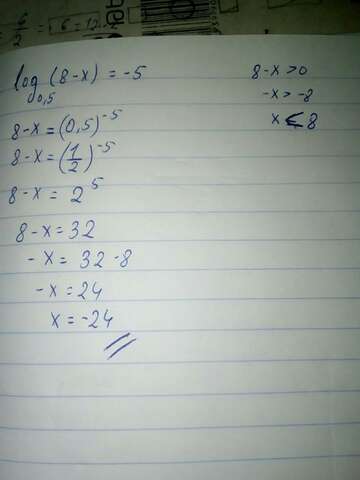 = 6 = 12
log₀,₅ (8-x) = -5
8-x = (0,5)⁻⁵
8-x = (1/2)⁻⁵
8-x = 2⁵
8-x = 32
-x = 32-8
-x = 24
x = -24
8-x > 0
-x > -8
x < 8